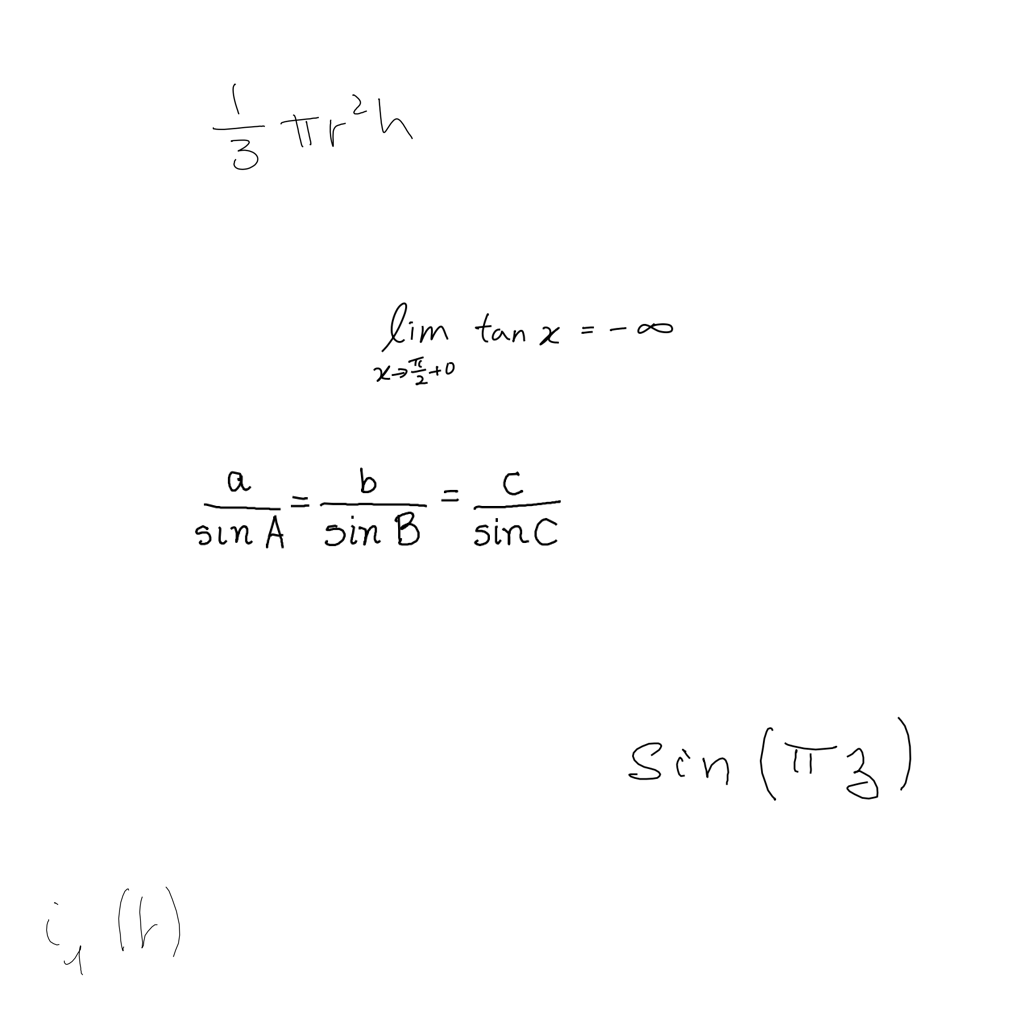 \frac{1}{3} \pi r^2 h
\lim_{x \to \frac{\pi}{2}+0} \tan x = -\infty
\frac{a}{\sin A} = \frac{b}{\sin B} = \frac{c}{\sin C}
\sin(\pi z)
i_1(t)